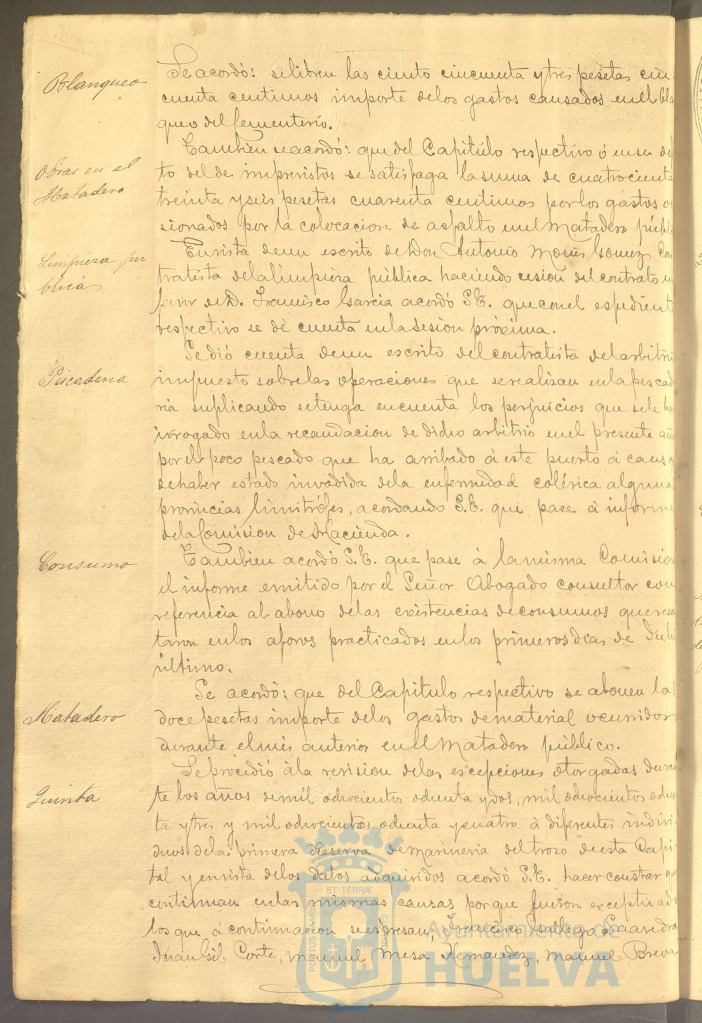 Blanqueo
Se acordó: se libren las ciento cincuenta y tres pesetas cin
cuenta centimos importe de los gastos causados en el bla
queo del Cementerio.
Obras en el
Matadero
Tambien se acordó: que del Capitulo respectivo ó en su de
to del de imprevistos se satisfaga la suma de cuatrocienta
treinta y seis pesetas cuarenta centimos por los gastos o
sionados por la colocacion de asfalto en el Matadero públ
Limpieza pu
blica
En vista de un escrito de Don Antonio Gomez Con
tratista de la limpieza pública haciendo cesion del contrato
favor de D. Francisco Garcia acordó S.E. que con el espedient
respectivo se dé cuenta en la sesion próxima.
Pescaderia
Se dió cuenta de un escrito del contratista del arbitri
impuesto sobre las operaciones que se realizan en la pescad
ria suplicando se tenga en cuenta los perjuicios que se le ha
irrogado en la recaudacion de dicho arbitrio en el presente añ
por el poco pescado que ha arribado á este puerto á causa
de haber estado invadida de la enfermedad colérica alguna
provincias limitrófes, acordando S.E. que pase á inform
de la Comision de Hacienda.
Consumo
Tambien acordó S.E. que pase á la misma Comision
el informe emitido por el Señor Abogado consultor con
referencia al abono de las existencias de consumos que resu
taron en los aforos practicados en los primeros dias de Juli
último.
Matadero
Se acordó: que del Capitulo respectivo se abonen la
doce pesetas importe de los gastos de material ocurridos
durante el mes anterior en el Matadero público.
Quinta
Se procedió á la revision de las escepciones otorgadas duran
te los años de mil ochocientos ochenta y dos, mil ochocientos ochen
ta y tres y mil ochocientos ochenta y cuatro á diferentes indivi
duos de la primera reserva de marineria del trozo de esta Capi
tal y en vista de los datos adquiridos acordó S.E. hacer constar que
continuan en las mismas causas porque fueron exceptuado
los que á continuacion se espresan, Francisco Saavedra
Juan Gil Corte, Manuel Mesa Hernandez, Manuel Breva
PORTUS MARIS
ET TERRÆ
CUSTODIA
Ayuntamiento de
HUELVA